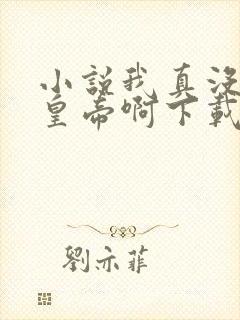 小説我真没
皇帝啊下載
劉亦菲